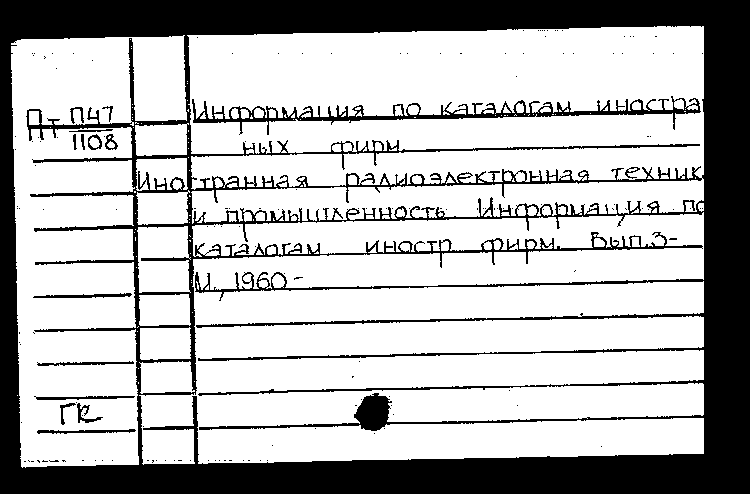 Пт П47
1108
Информация по каталогам иностран
ных фирм.
Иностранная радиоэлектронная техник
и промышленность. Информация по
каталогам иностр фирм. Вып.3-
М., 1960-
ГК